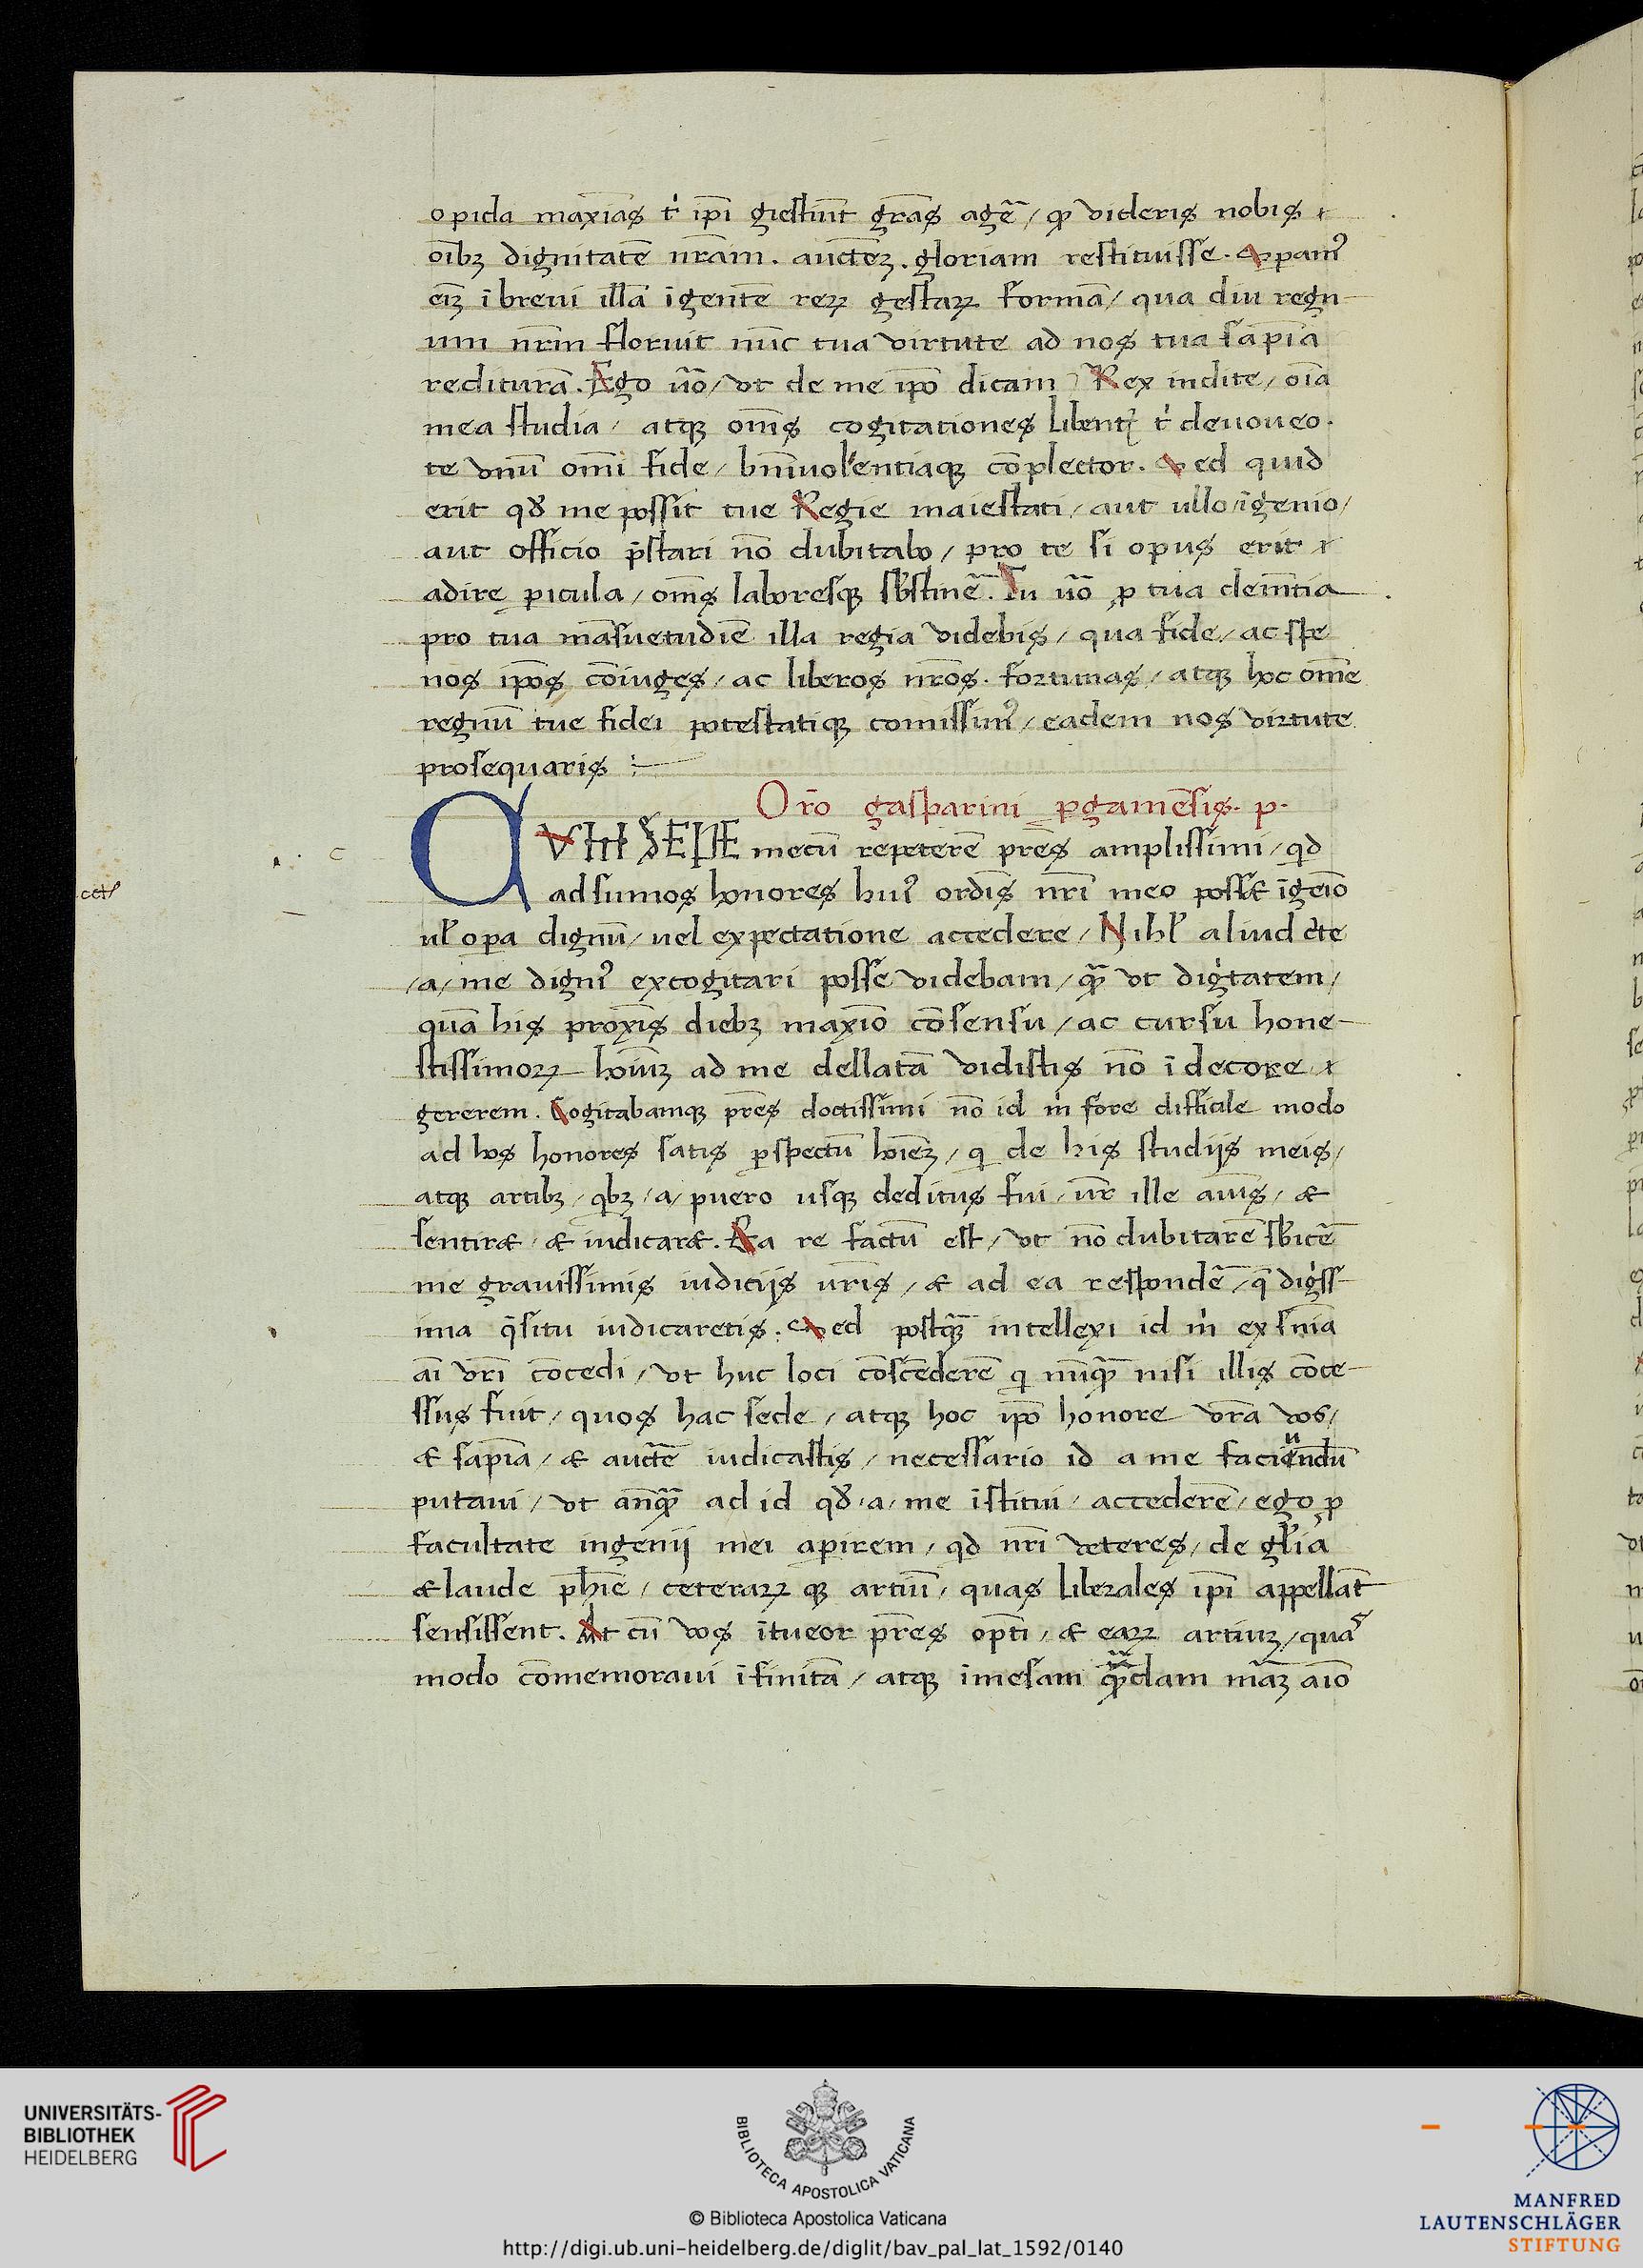 opida maxīas t̔ ip̄i gestiūt grās agē / qꝫ videris nobis
oībꝫ dignitatē nrām . auctēꝫ . gloriam restituisse . Speramꝰ
eīꝫ ī breui illā īgentē reꝝ gestaꝝ formā / qua diu regn
um nr̄m floruit nūc tua virtute ad nos tua sapīa
rediturā . Ego ūo / vt de me ip̄o dicam Rex inclite / oīa
mea studia / atqꝫ om̄s cogitationes libent̔ t̔ deuoueo .
te vnū omī fide / bn̄iuolentiaqꝫ cōplector . Sed quid
erit qd̄ me possit tue Regie maiestati / aut ullo / īgenio /
aut officio p̄stari nō dubitabo / pro te si opus erit
adire ꝑicula / om̄s laboresqꝫ sbstinē . Tu ūo ꝓ tua clem̄tia
pro tua māsuetudīe illa regia videbis / qua fide / ac spe
nos ip̄os cōiuges / ac liberos nr̄os . fortunas / atqꝫ hoc om̄e
regnū tue fidei potestatiqꝫ comissimꝰ / eadem nos virtute
prosequaris :
Or̄o gasparini ꝑgamēsis . p .
CVM SEPE mecū repeterē pr̄es amplissimi / qd
ad sumos honores huiꝰ ordīs nr̄i meo possæ īgeīo
ul̄ oꝑa dignū / uel expectatione accedere / Nihl̄ aliud c̄te
/ a / me digniꝰ excogitari posse videbam / qꝫ̄ vt dig̔tatem /
quā his proxīs diebꝫ maxīo cōsensu / ac cursu hone
stissimoꝝ hoīuꝫ ad me dellatā vidistis nō ī decore
gererem . Cogitabamqꝫ pr̄es doctissimi nō id m̔ fore difficile modo
ad hos honores satis ꝑspectū hoīeꝫ / qi de his studijs meis /
atqꝫ artibꝫ / qbꝫ / a / puero usqꝫ deditus fui / ur̄ ille aīus / æ
sentiræ / æ iudicaræ . Ea re factū est / vt nō dubitarē sbicē
me grauissimis iudicijs ur̄is / æ ad ea respondē / q̄ dig̔ss
ima q̄situ iudicaretis . Sed postqꝫ̄ intellexi id m̔ ex snīa
aī vr̄i cōcedi / vt huc loci cōscēderē qi nūqꝫ̄ nisi illis cōce
ssus fuit / quos hac sede / atqꝫ hoc ip̄o honore vr̄a vos /
æ sapīa / æ auctē iudicastis / necessario id a me faciundū
putaui / vt anqꝫ̄ ad id qd̄ / a / me īstitui / accederē / ego ꝓ
facultate ingenij mei aꝑirem / qd nr̄i veteres / de gl̄ia
æ laude ph̄ie / ceteraꝝ qꝫ artiū / quas liberales ip̄i appellāt
sensissent . At cū vos ītueor pr̄es opti / æ eaꝝ artiuꝫ / quaˢ
modo cōmemoraui īfinitā / atqꝫ īmesam qꝫ̄dam māꝫ aīo
cet̔
c
UNIVERSITÄTS-
BIBLIOTHEK
HEIDELBERG
BIBLIOTECA APOSTOLICA VATICANA
© Biblioteca Apostolica Vaticana
http://digi.ub.uni-heidelberg.de/diglit/bav_pal_lat_1592/0140
MANFRED
LAUTENSCHLÄGER
STIFTUNG